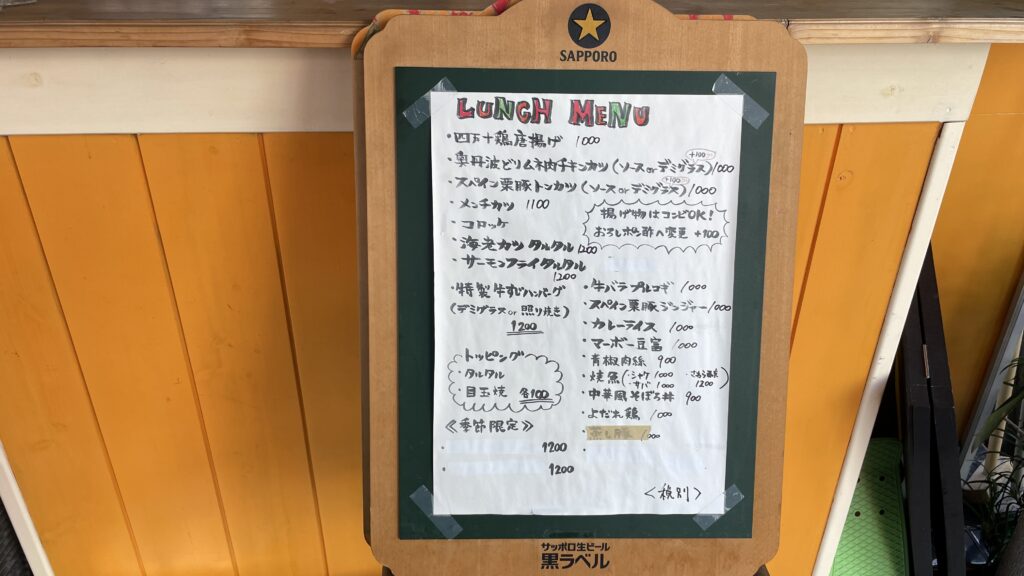 SAPPORO
LUNCH MENU
・四万十鶏唐揚げ 1000
・奥丹波どりムネ肉チキンカツ(ソースorデミグラス)1000
+100
・スペイン栗豚トンカツ(ソースorデミグラス)1000
+100
・メンチカツ 1100
・コロッケ
・海老カツタルタル 1200
・サーモンフライタルタル
1200
揚げ物はコンビOK!
おろしポン酢へ変更 +100
・特製牛すじハンバーグ
(デミグラス or 照り焼き)
1200
・トッピング
・タルタル
目玉焼 各100
≪季節限定≫
・ 1200
・ 1200
・牛バラプルコギ 1000
・スペイン栗豚ジンジャー 1000
・カレーライス 1000
・マーボー豆富 1000
・青椒肉絲 900
・焼魚(・シャケ 1000
・サバ 1000
1200)
・中華風そぼろ丼 900
・よだれ鶏 1000
・蒸し豚 1000
<税別>
サッポロ生ビール
黒ラベル